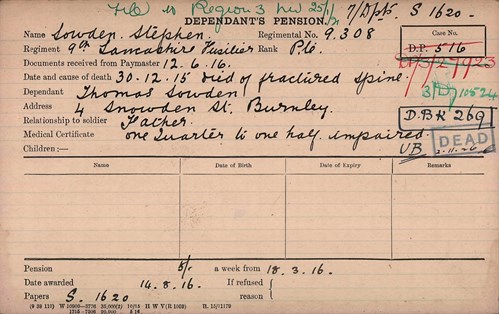 File to Region 3 7/Dpts. S 1620-
DEPENDANT'S PENSION.
Name Sowden. Stephen. Regimental No. 9.308
Regiment 9th Lancashire Fusilier Rank Pte. Case No.
D.P. 516
Documents received from Paymaster 12.6.16.
Date and cause of death 30.12.15 Died of fractured spine.
Dependant Thomas Sowden
Address 4 Snowden St. Burnley. D.B.K 269
Relationship to soldier Father. DEAD
Medical Certificate one Quarter to one half impaired. UB
Children:—
Name Date of Birth Date of Expiry Remarks
Pension 5/- a week from 18.3.16.
Date awarded 14.8.16. If refused
Papers S. 1620 reason